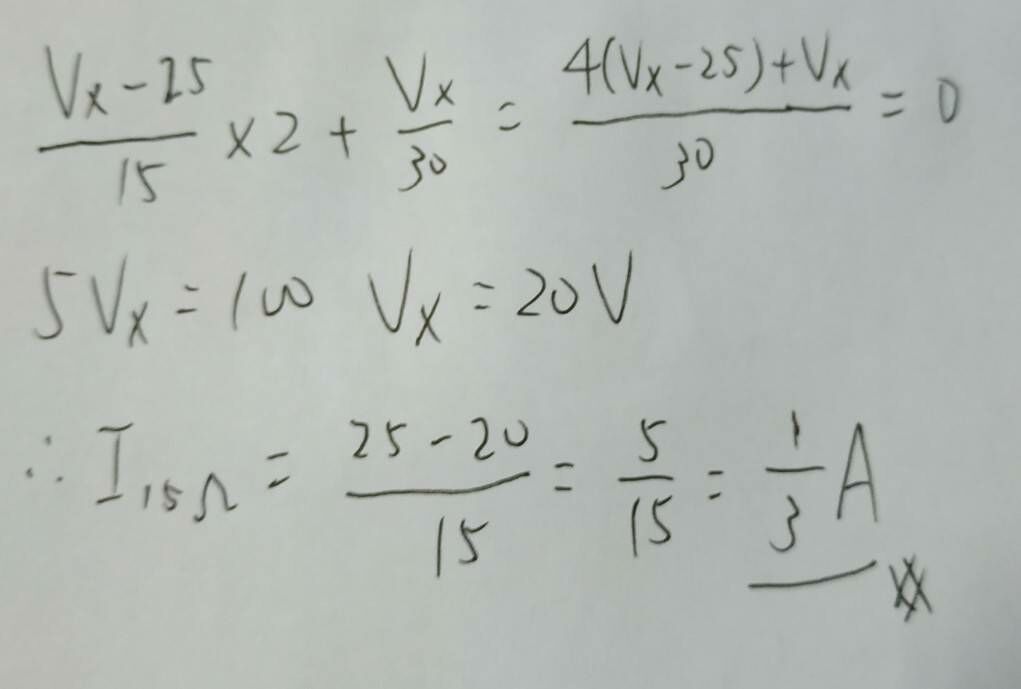 (Vx-25)/15 × 2 + Vx/30 = (4(Vx-25)+Vx)/30 = 0
5Vx = 100 Vx = 20V
∴ I15Ω = (25-20)/15 = 5/15 = 1/3 A